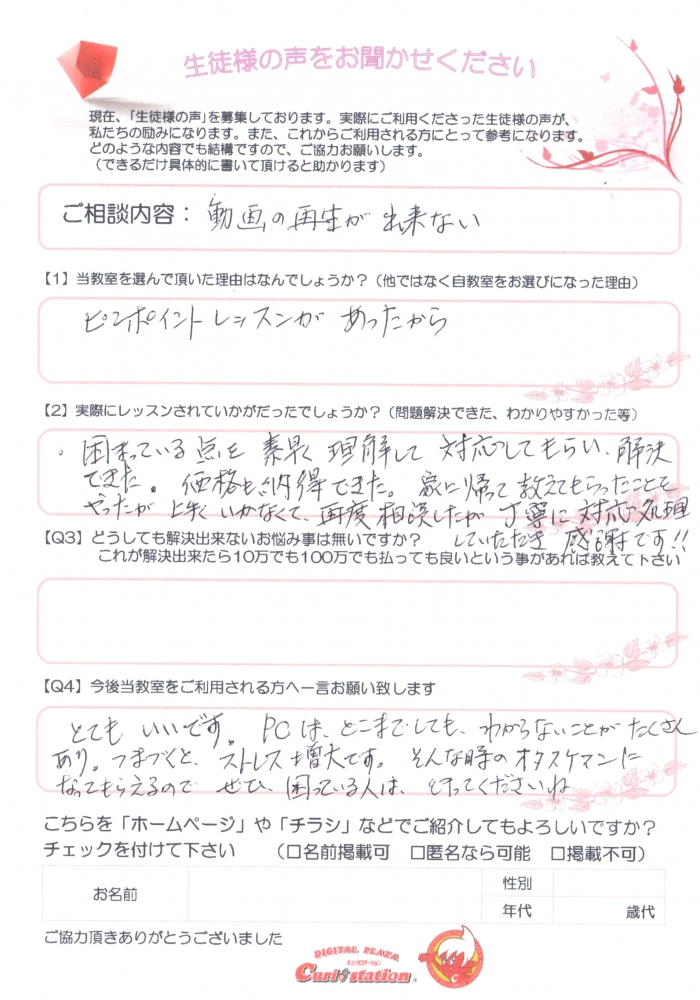 生徒様の声をお聞かせください
現在、「生徒様の声」を募集しております。実際にご利用くださった生徒様の声が、
私たちの励みになります。また、これからご利用される方にとって参考になります。
どのような内容でも結構ですので、ご協力お願いします。
（できるだけ具体的に書いて頂けると助かります）
ご相談内容： 動画の再生が出来ない
【1】当教室を選んで頂いた理由はなんでしょうか？（他ではなく自教室をお選びになった理由）
ピンポイントレッスンが あったから
【2】実際にレッスンされていかがだったでしょうか？（問題解決できた、わかりやすかった等）
・困まっている点を 素早く 理解して 対応してもらい、解決
できた。価格も納得できた。家に帰って教えてもらったことを
やったが 上手く いかなくて、再度相談したが 丁寧に 対応 処理
していただき 感謝です!!
【Q3】どうしても解決出来ないお悩み事は無いですか？
これが解決出来たら10万でも100万でも払っても良いという事があれば教えて下さい
【Q4】今後当教室をご利用される方へ一言お願い致します
とても いいです。PCは、どこまでしても、わからないことが たくさん
あり。つまづくと、ストレス増大です。そんな時のオタスケマンに
なってもらえるので ぜひ、困っている人は、 ってくださいね
こちらを「ホームページ」や「チラシ」などでご紹介してもよろしいですか？
チェックを付けて下さい （□名前掲載可 □匿名なら可能 □掲載不可）
お名前
性別
年代 歳代
ご協力頂きありがとうございました
DIGITAL PLAZA
Curio station